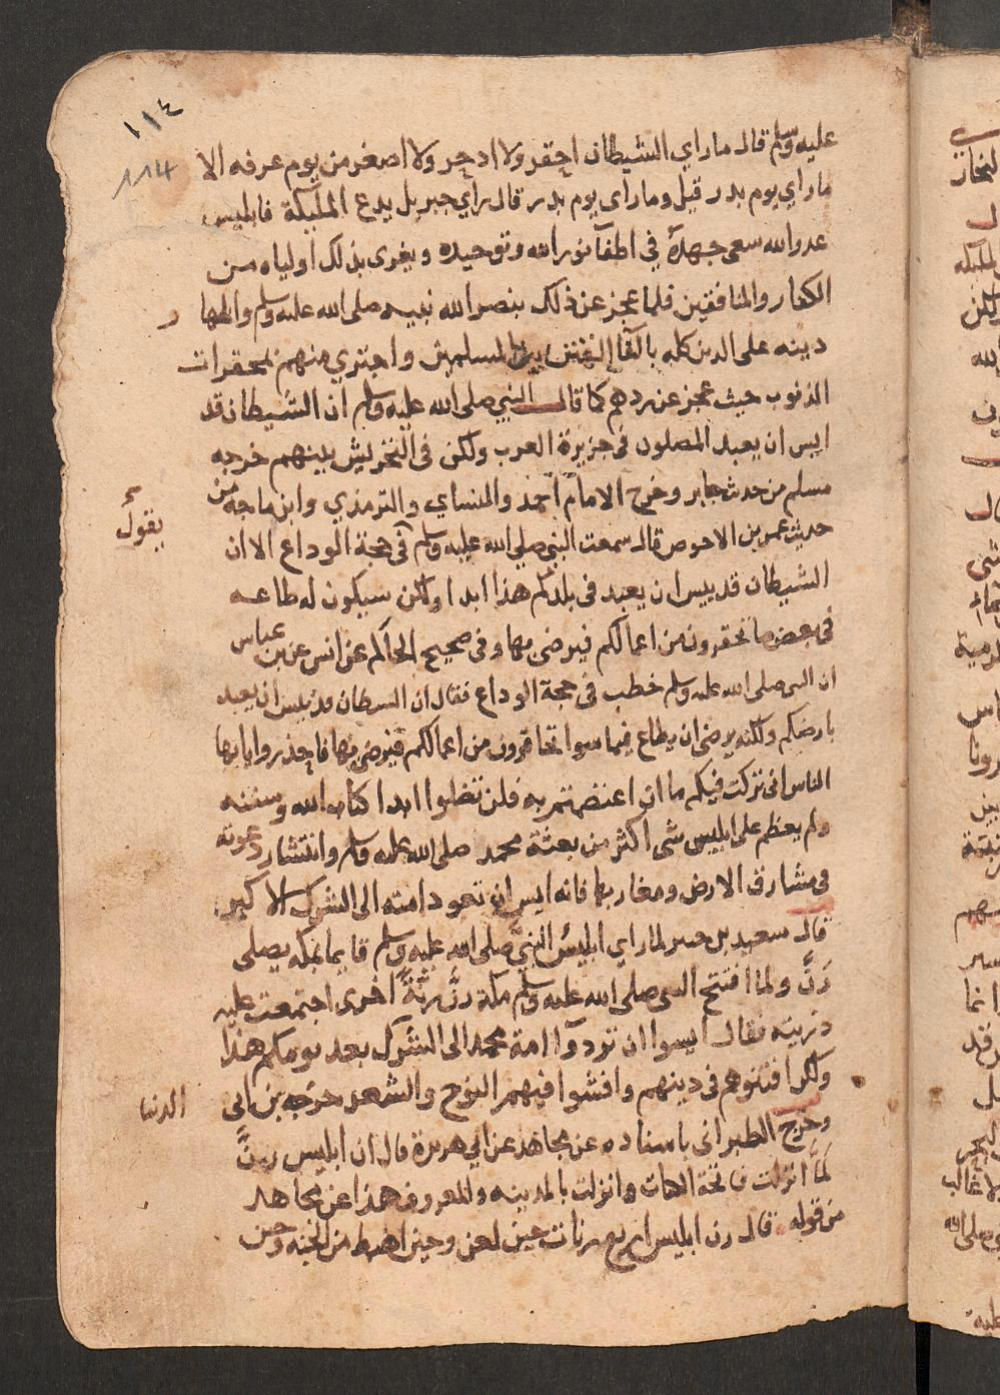 ١١٤
114
عليه وسلم قال ما راي الشيطان احقر ولا ادحر ولا اصغر من يوم عرفه الا
ما راي يوم بدر قيل وما راى يوم بدر قال راي جبريل يدع الملىكة فابليس
عدو الله سعى جهده في اطفآ نور الله وتوحيده ويغرى بذلك اولياه من
الكفار والمنافقين فلما عجز عن ذلك بنصر الله نبيه صلى الله عليه وسلم واظهار
دينه على الدين كله بالقآ الفتن بين المسلمين واجتزي منهم بمحقرات
الذنوب حيث عجز عن ردهم كما قال النبي صلى الله عليه وسلم ان الشيطان قد
ايس ان يعبد المصلون في جزيرة العرب ولكن في التحريش بينهم خرجه
مسلم من حديث جابر وخرج الامام احمد والنساي والترمذي وابن ماجه من
حديث عمر بن الاحوص قال سمعت النبي صلى الله عليه وسلم في حجة الوداع الا ان
يقول
الشيطان قد ييس ان يعبد في بلدكم هذا ابدا ولكن سيكون له طاعه
في بعض ما تحقرون من اعمالكم فيرضى بها وفي صحيح الحاكم عن انس عن بن عباس
ان النبى صلى الله عليه وسلم خطب في حجة الوداع فقال ان الشيطان قد ييس ان يعبد
بارضكم ولكنه يرضى ان يطاع فيما سوا تحاقرون من اعمالكم فيرضى بها فاحذروا يا ايها
الناس اني تركت فيكم ما ان اعتصمتم به فلن تضلوا ابدا كتاب الله وسنته
ولم يعظم على ابليس شى اكثر من بعثة محمد صلى الله عليه وسلم وانتشار دعوته
في مشارق الارض ومغاربها فانه ايس ان تعود امته الى الشرك الاكبر
قال سعيد بن جبير لما راي ابليس النبي صلى الله عليه وسلم قايما بمكه يصلى
رن ولما افتتح النبى صلى الله عليه وسلم مكة رن رنة اخرى اجتمعت عليه
ذريته فقال ايسوا ان تردوا امة محمد الى الشرك بعد يومكم هذا
ولكن افتنوهم في دينهم وافشوا فيهم النوح والشعر خرجه بن ابى
الدنيا
وخرج الطبرانى باسناده عن مجاهد عن ابي هريرة قال ان ابليس رن
لما انزلت فاتحة الكتاب وانزلت بالمدينه والمعروف هذا عن مجاهد
من قوله قال رن ابليس اربع رنات حين لعن وحين اهبط من الجنه وحين